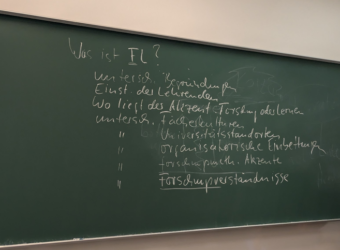 Was ist FL?
untersch. Bezeichnungen
Einst. der Lehrenden
Wo liegt der Akzent: Forschung des Lernen
untersch. Fächerkulturen
" Universitätsstandorten
" organisatorische Einbettungen
" forschungsmeth. Akzente
" Forschungsverständnisse